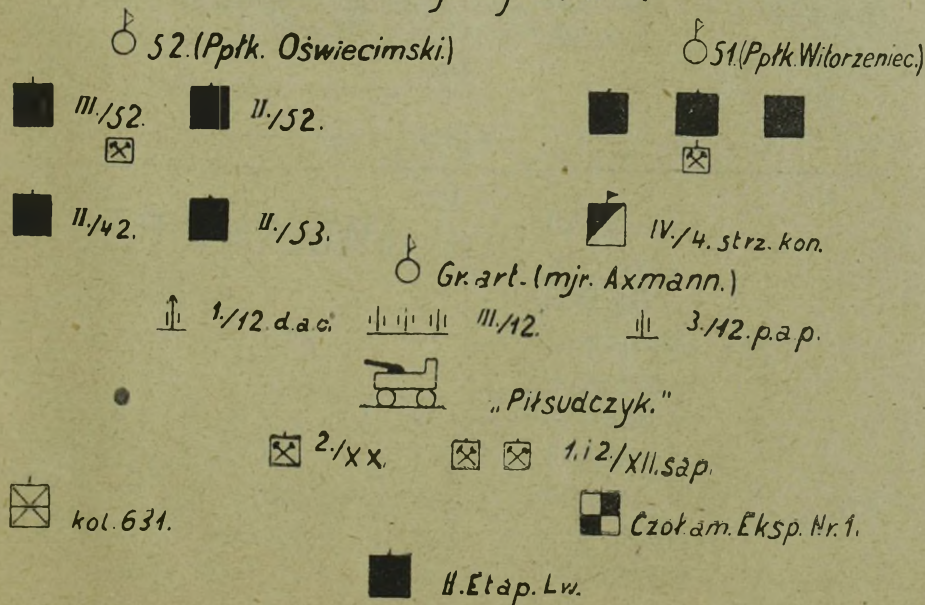 52.(Ppłk. Oświecimski.)
51.(Ppłk.Witorzeniec.)
III./52. II./52.
II./42. II./53.
IV./4. strz. kon.
Gr. art.-(mjr. Axmann.)
1./12.d.a.c. III./12. 3./12.p.a.p.
„Piłsudczyk."
2./XX. 1. i 2./XII. sap.
kol. 631. Czoł am. Eksp. Nr. 1.
II. Etap. Lw.